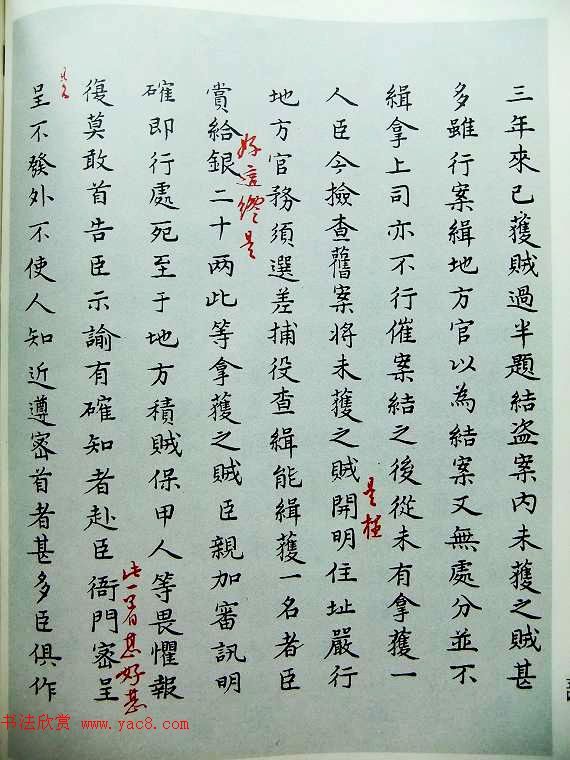 三年來已獲賊過半題結盜案內未獲之賊甚
多雖行案緝地方官以為結案又無處分並不
緝拿上司亦不行催案結之後從未有拿獲一
人臣今撿查舊案將未獲之賊開明住址嚴行
是極
地方官務須選差捕役查緝能緝獲一名者臣
好這纔是
賞給銀二十两此等拿獲之賊臣親加審訊明
確即行處死至于地方積賊保甲人等畏懼報
此一著甚好甚
復莫敢首告臣示諭有確知者赴臣衙門密呈
呈不發外不使人知近遵密首者甚多臣俱作
书法欣赏 www.yac8.com